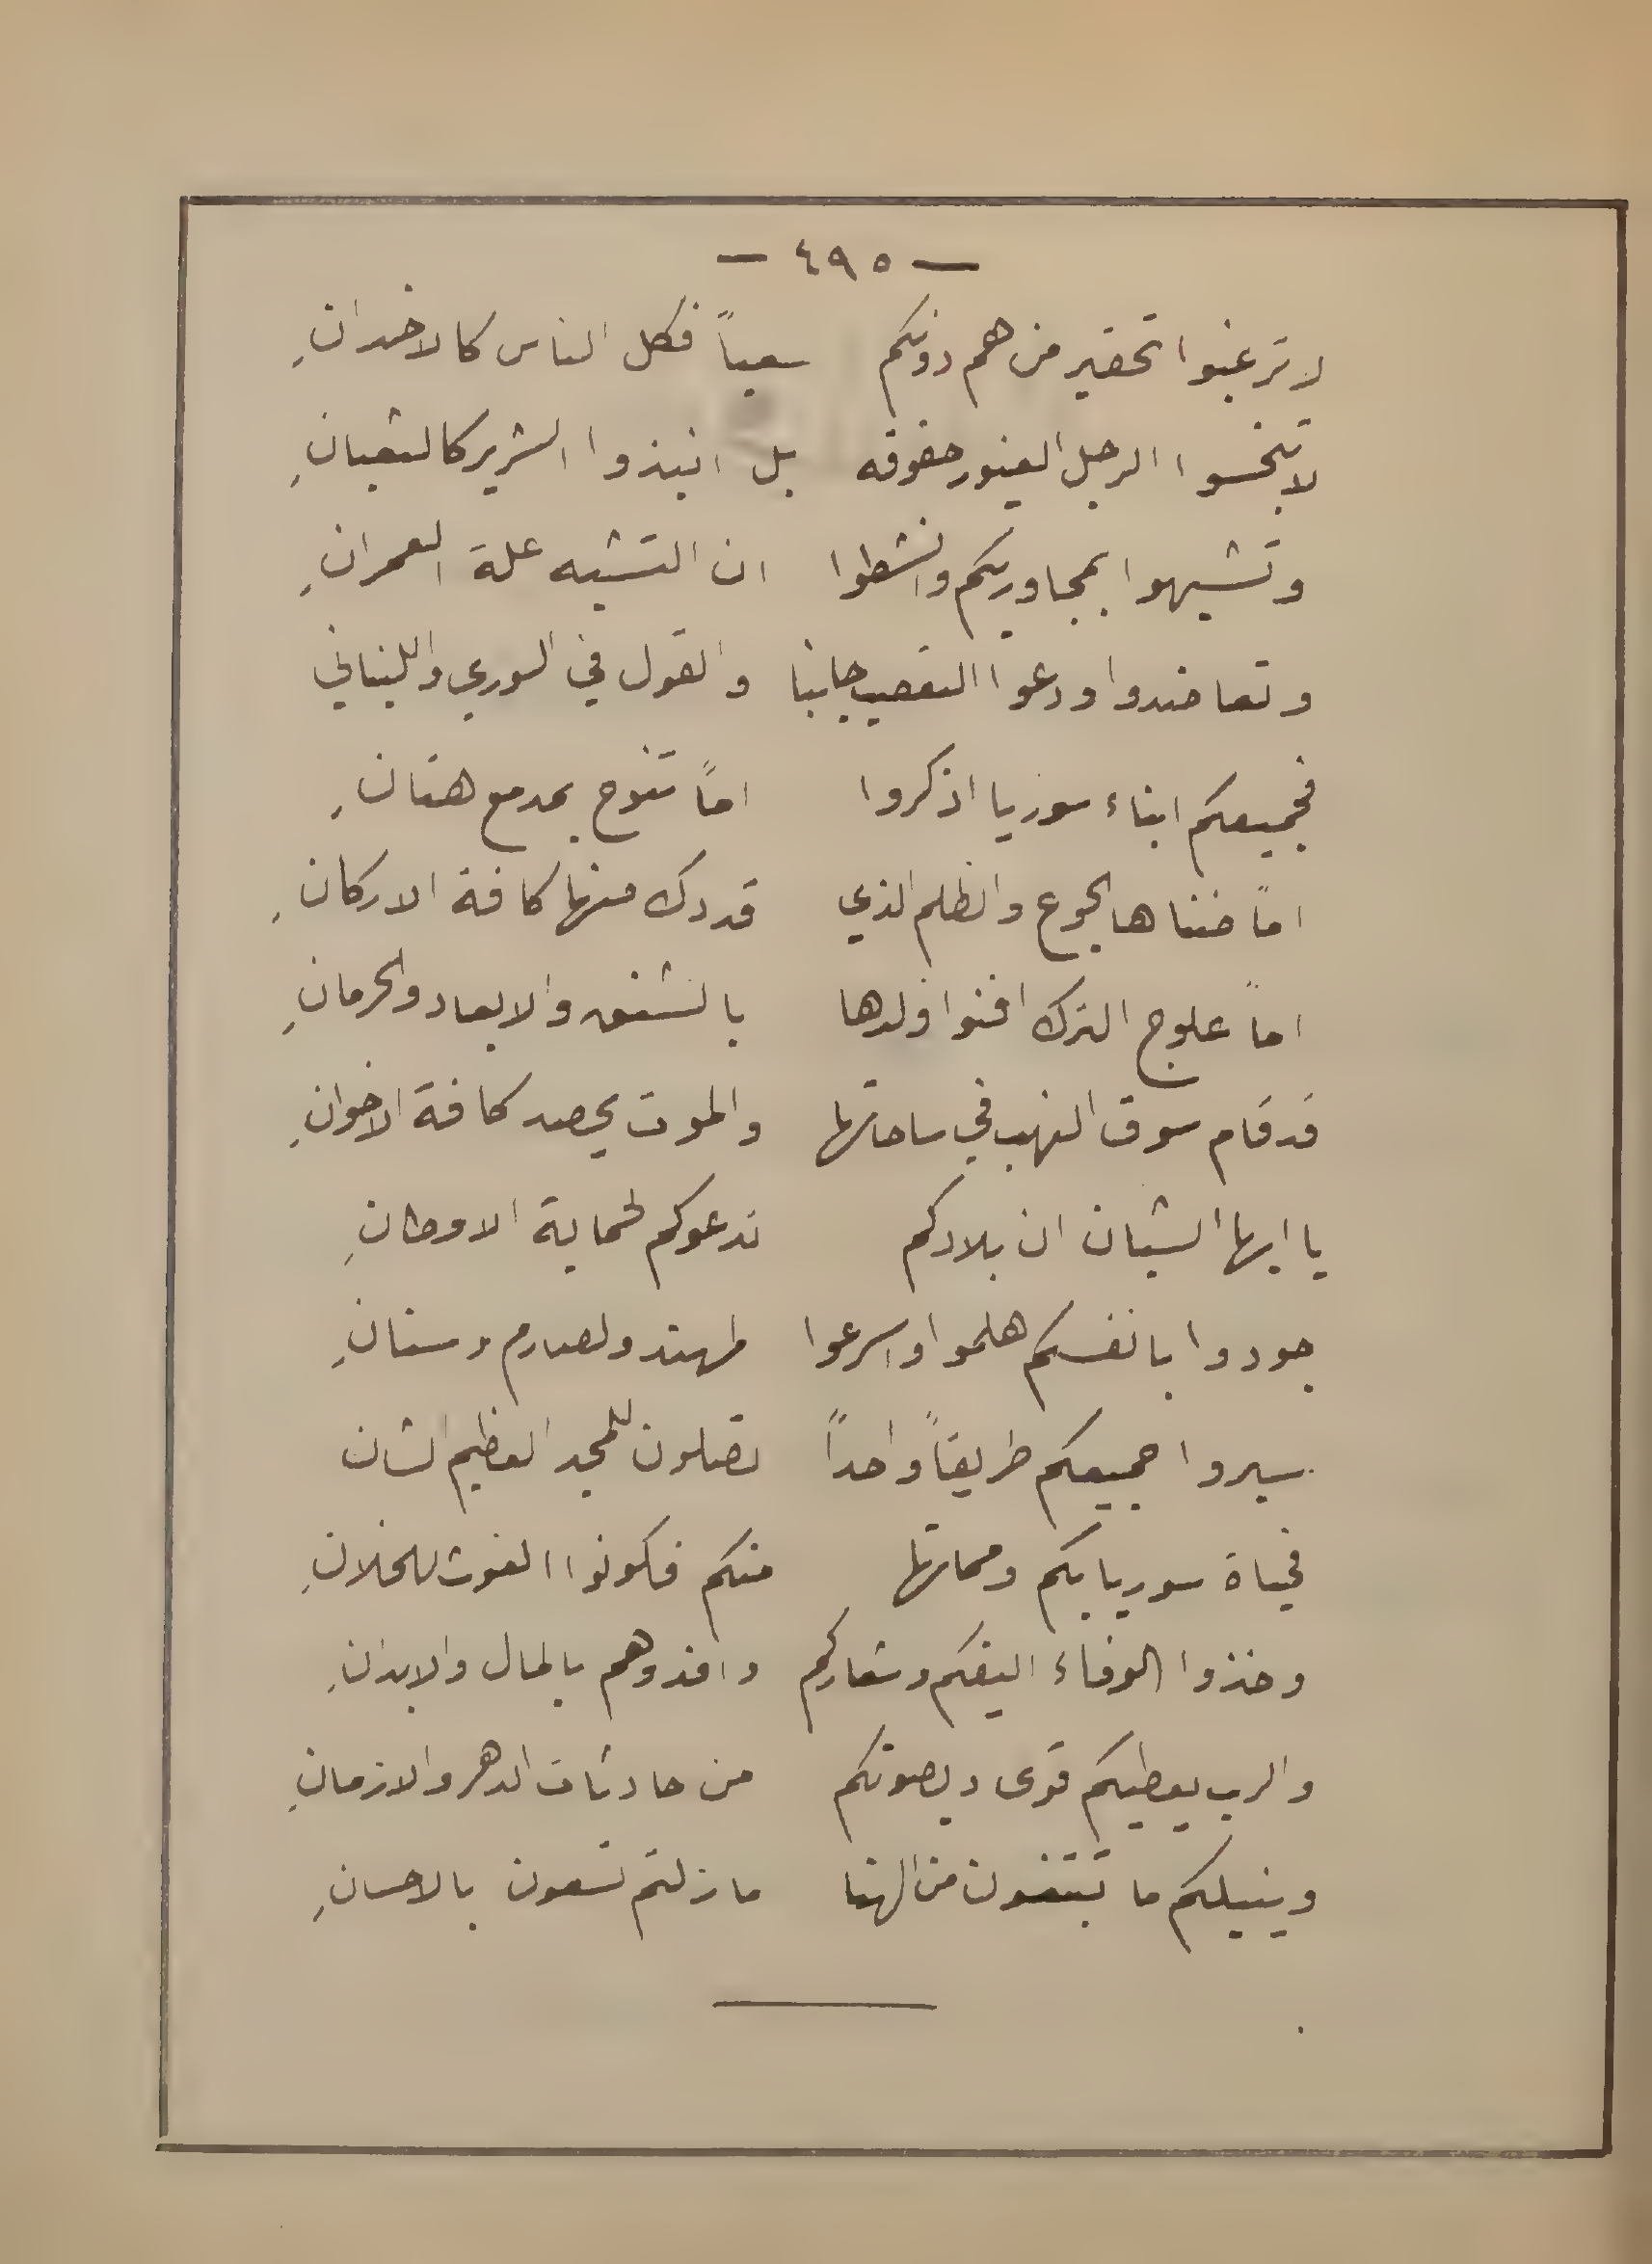 — ٤٩٥ —
لا ترغبوا تحقير من هم دونكم سعياً فكل الناس كالاخدانِ
لا تبخسوا الرجل الغيور حقوقه بل انبذوا الشرير كالثعبانِ
وتشبهوا بمجاوريكم وانشطوا ان التشبه علة العمرانِ
وتعاضدوا ودعوا التعصب جانبا والقول في السوري واللبناني
فجميعكم ابناء سوريا اذكروا اماً تنوح بمدمع هتانِ
اماً ضناها الجوع والظلم الذي قد دك منها كافة الاركانِ
اماً علوج الترك افنوا ولدها بالشنق والابعاد والحرمانِ
قد قام سوق النهب في ساحاتها والموت يحصد كافة الاخوانِ
يا ايها الشبان ان بلادكم تدعوكم لحماية الاوطانِ
جودوا بانفسكم هلموا واسرعوا لمهند ولصارم وسنانِ
سيروا جميعكم طريقاً واحداً تصلون للمجد العظيم الشان
فحياة سوريا بكم ومماتها منكم فكونوا الغوث للخلانِ
وخذوا الوفاء اليفكم وشعاركم وافدوهم بالمال والابدانِ
والرب يعطيكم قوى ويصونكم من حادثات الدهر والازمانِ
وينيلكم ما تبتغون من الهنا ما زلتم تسعون بالاحسانِ